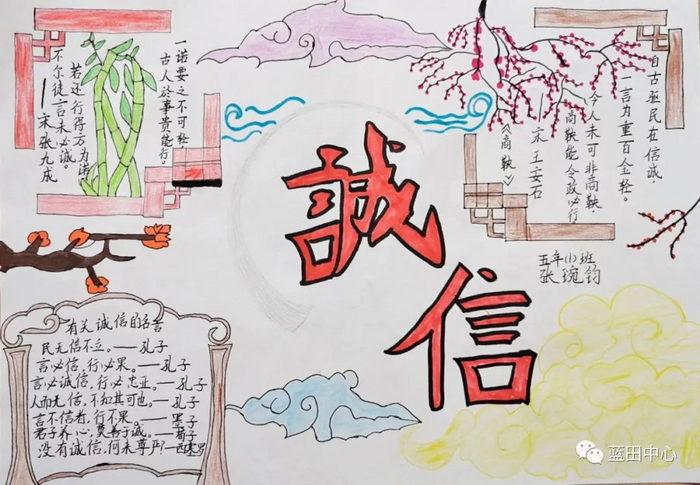 一诺要之不可轻
古人於事贵能行。
若还行得方为诺
不尔徒言未必诚。
——宋张九成
自古民在信诚，
一言为重百金轻。
今人未可非商鞅，
商鞅能令政必行
宋王安石
《商鞅》
誠
信
五年班
张琬钧
有关诚信的名言
民无信不立。——孔子
言必信，行必果。——孔子
言必诚信，行必忠正。——孔子
人而无信，不知其可也。——孔子
言不信者，行不果。——墨子
君子养心，莫善于诚。——荀子
没有诚信，何来尊严？——西塞罗
蓝田中心